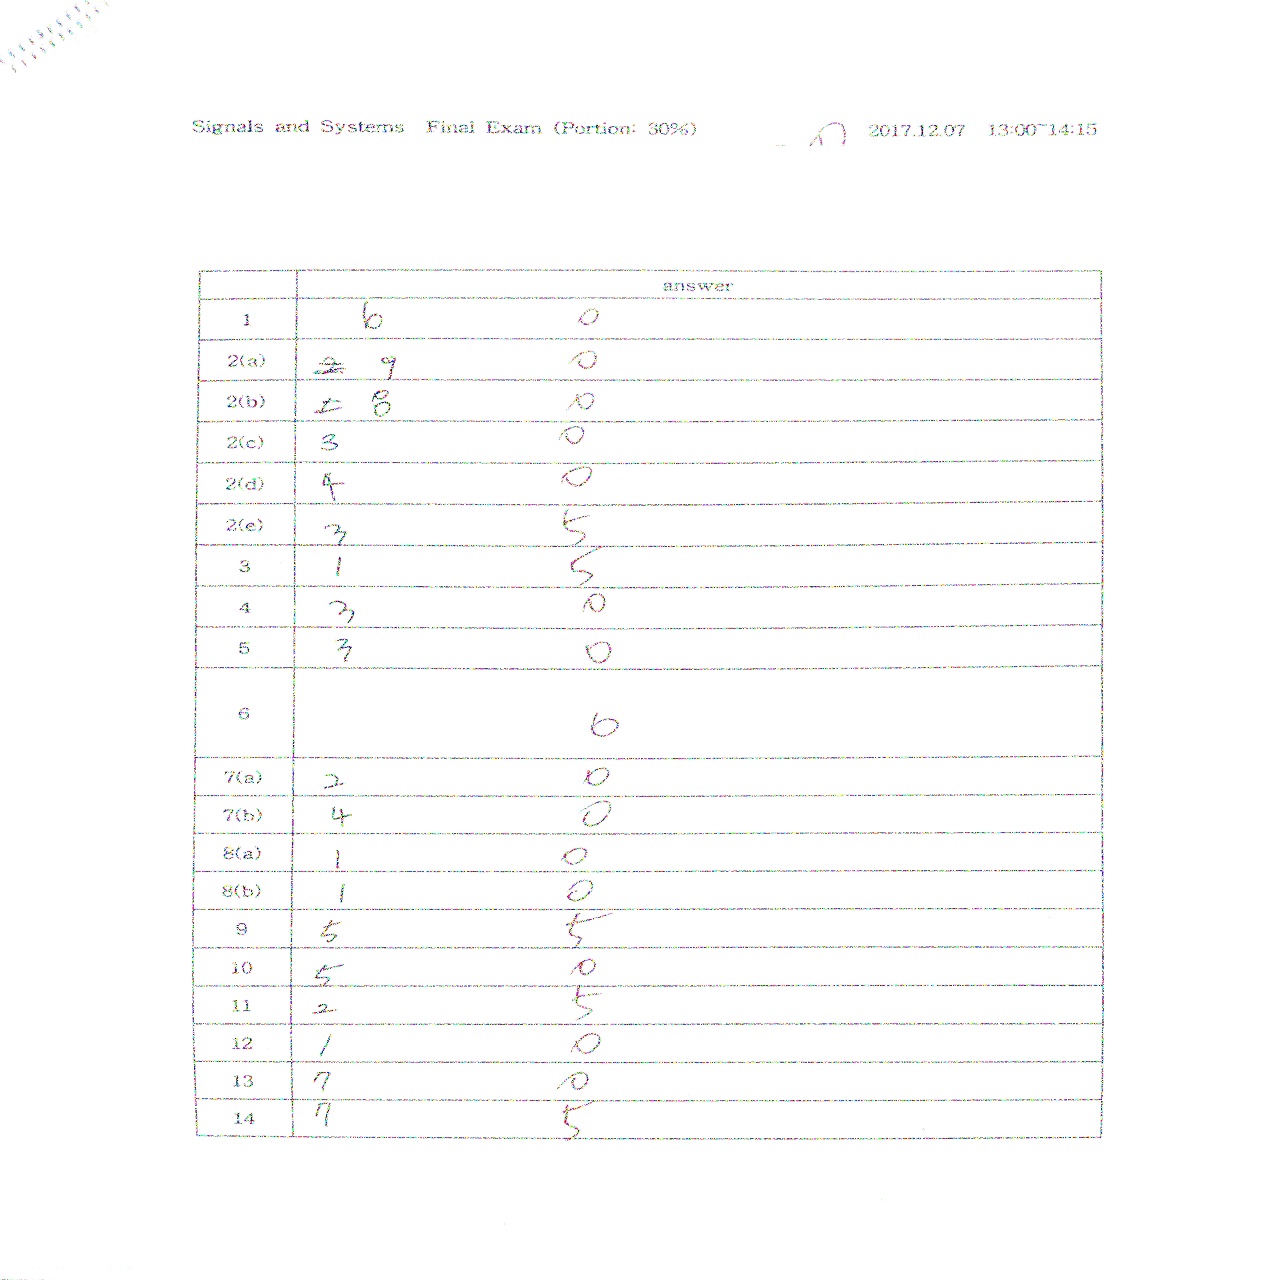 Signals and Systems Final Exam (Portion: 30%) 2017.12.07 13:00~14:15
answer
1 6 0
2(a) 2 9 0
2(b) 8 0
2(c) 3 0
2(d) 4 0
2(e) 3 5
3 1 5
4 3 0
5 3 0
6 0
7(a) 2 0
7(b) 4 0
8(a) 1 0
8(b) 1 0
9 5 5
10 5 0
11 2 5
12 1 0
13 7 0
14 7 5